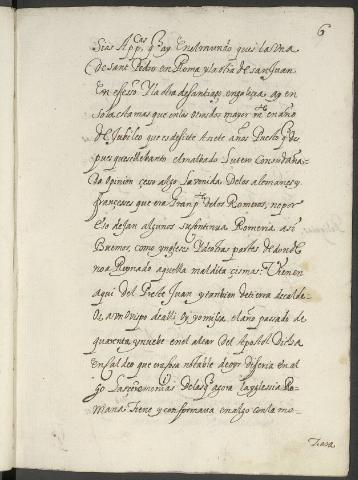 6
sias App.cas q̃ ay En el mundo que es la una
de sant Pedro en Roma y la otra de san Juan
En efeso Y la otra de santiago en galizia ay en
sola esta mas que en las otras dos mayor m.te en año
de Jubileo que es de siete A siete años Puesto q̃ des
pues que se lebanto el maldito Lutero Con su daña
da opinion ceso algo La venida de los alemanes y
franceses que era gran p.te de los Romeros, no por
eso dejan algunos su continua Romeria asi
Buenos, como yngleses Y de otras partes de donde
no a Reynado aquella maldita cisma: Vienen
aqui del Preste Juan y tambien de tierra de calde
os a un obispo de alli oy yo missa el año pasado de
quarenta y nuebe en el altar del Apostol dicha
en caldeo que era cosa notable de oyr diferia en al
go Las ceremonias de las q̃ agora la yglesia Ro
mana tiene y conformava en algo con la mo-